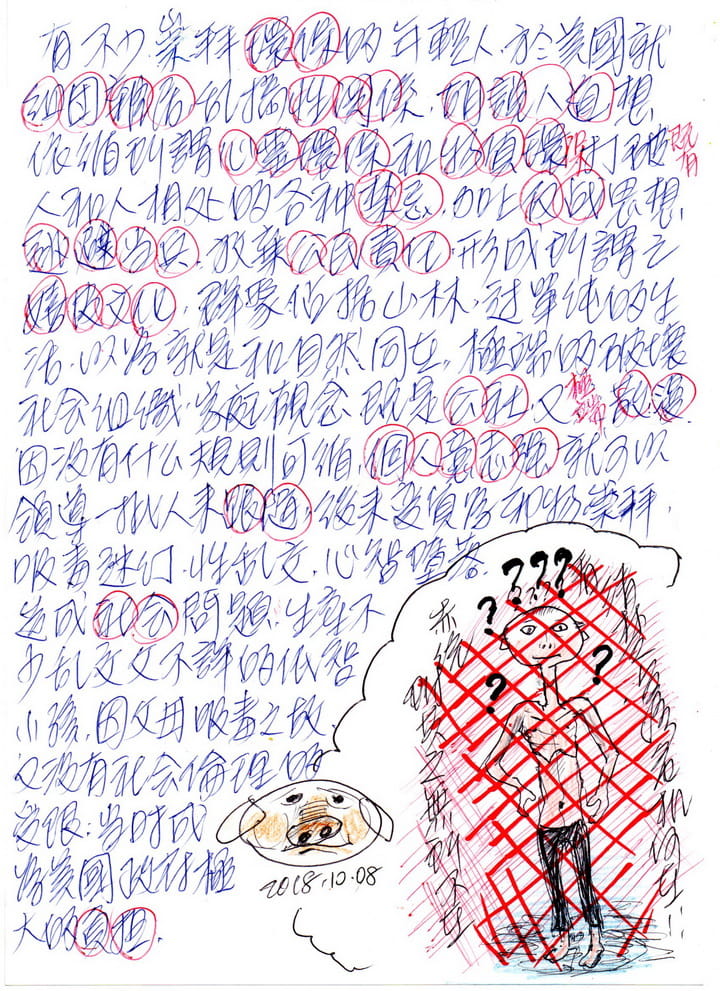 有不少崇拜環保的年輕人,於美國就
組團雜居乱搞性関係,胡説人自想,
依維所謂心霊環保和物質環保打破既有
人和人相处的各种禁忌,加上反战思想,
逃避当兵,放棄公民責任,形成所謂之
嬉皮文化,群聚佔据山林,过單純的生
活,以為就是和自然同在。極端的破壞
社会组織,家庭觀念,既是公社,又極端散漫,
因没有什么規則可循,個人意志強就可以
領導一批人来跟随,後来变質為和物崇拜,
吸毒迷幻,性乱交,心智墮落,
造成社会問題,生産不
少乱交父不詳的低智
小孩,因父母吸毒之故,
又没有社会倫理的
发限;当时成
為美國政府極
大的負担.
???
?
?
?
2018.10.08